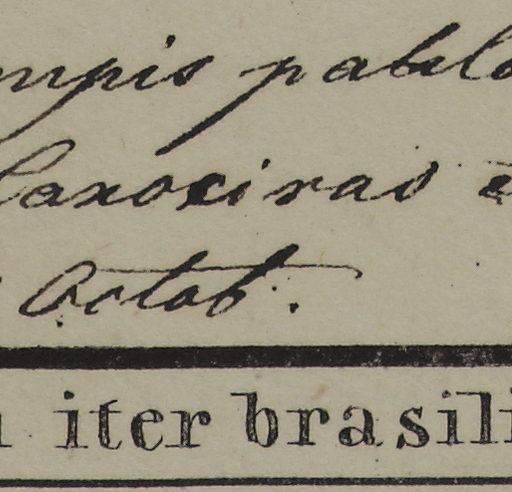 mpis pabl
Canoeiras
Octob.
iter brasili